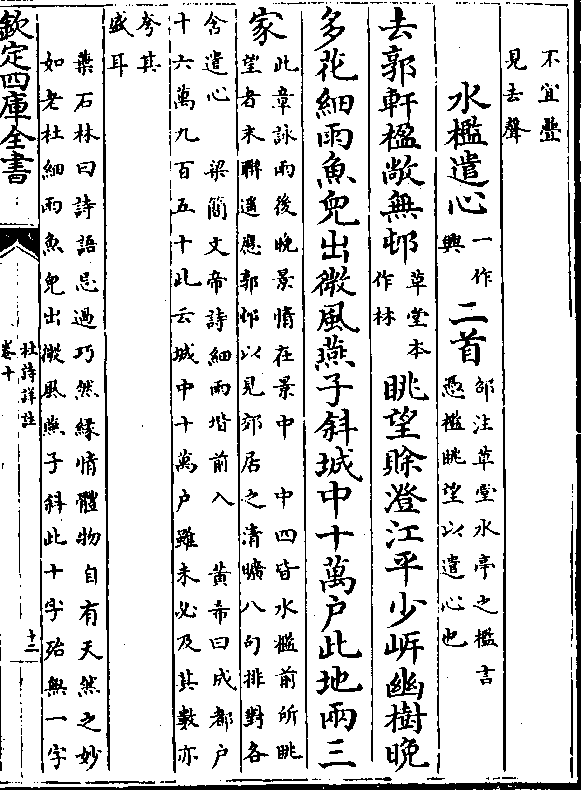 不宜疊
見去聲
水檻遣心
一作
興
二首
邵注草堂水亭之檻言
憑檻眺望以遣心也
去郭軒楹敞無邨
草堂本
作林
眺望賒澄江平少岸幽樹晚
多花細雨魚兒出微風燕子斜城中十萬户此地兩三
家
此章詠雨後晚景情在景中 中四皆水檻前所眺
望者末聯遥應郭邨以見郊居之清曠八句排對各
含遣心 梁簡文帝詩細雨堦前入 黄希曰成都户
十六萬九百五十此云城中十萬户雖未必及其數亦
夸其
盛耳
葉石林曰詩語忌過巧然緣情體物自有天然之妙
如老杜細雨魚兒出微風燕子斜此十字殆無一字
欽定四庫全書
杜詩詳註
卷十